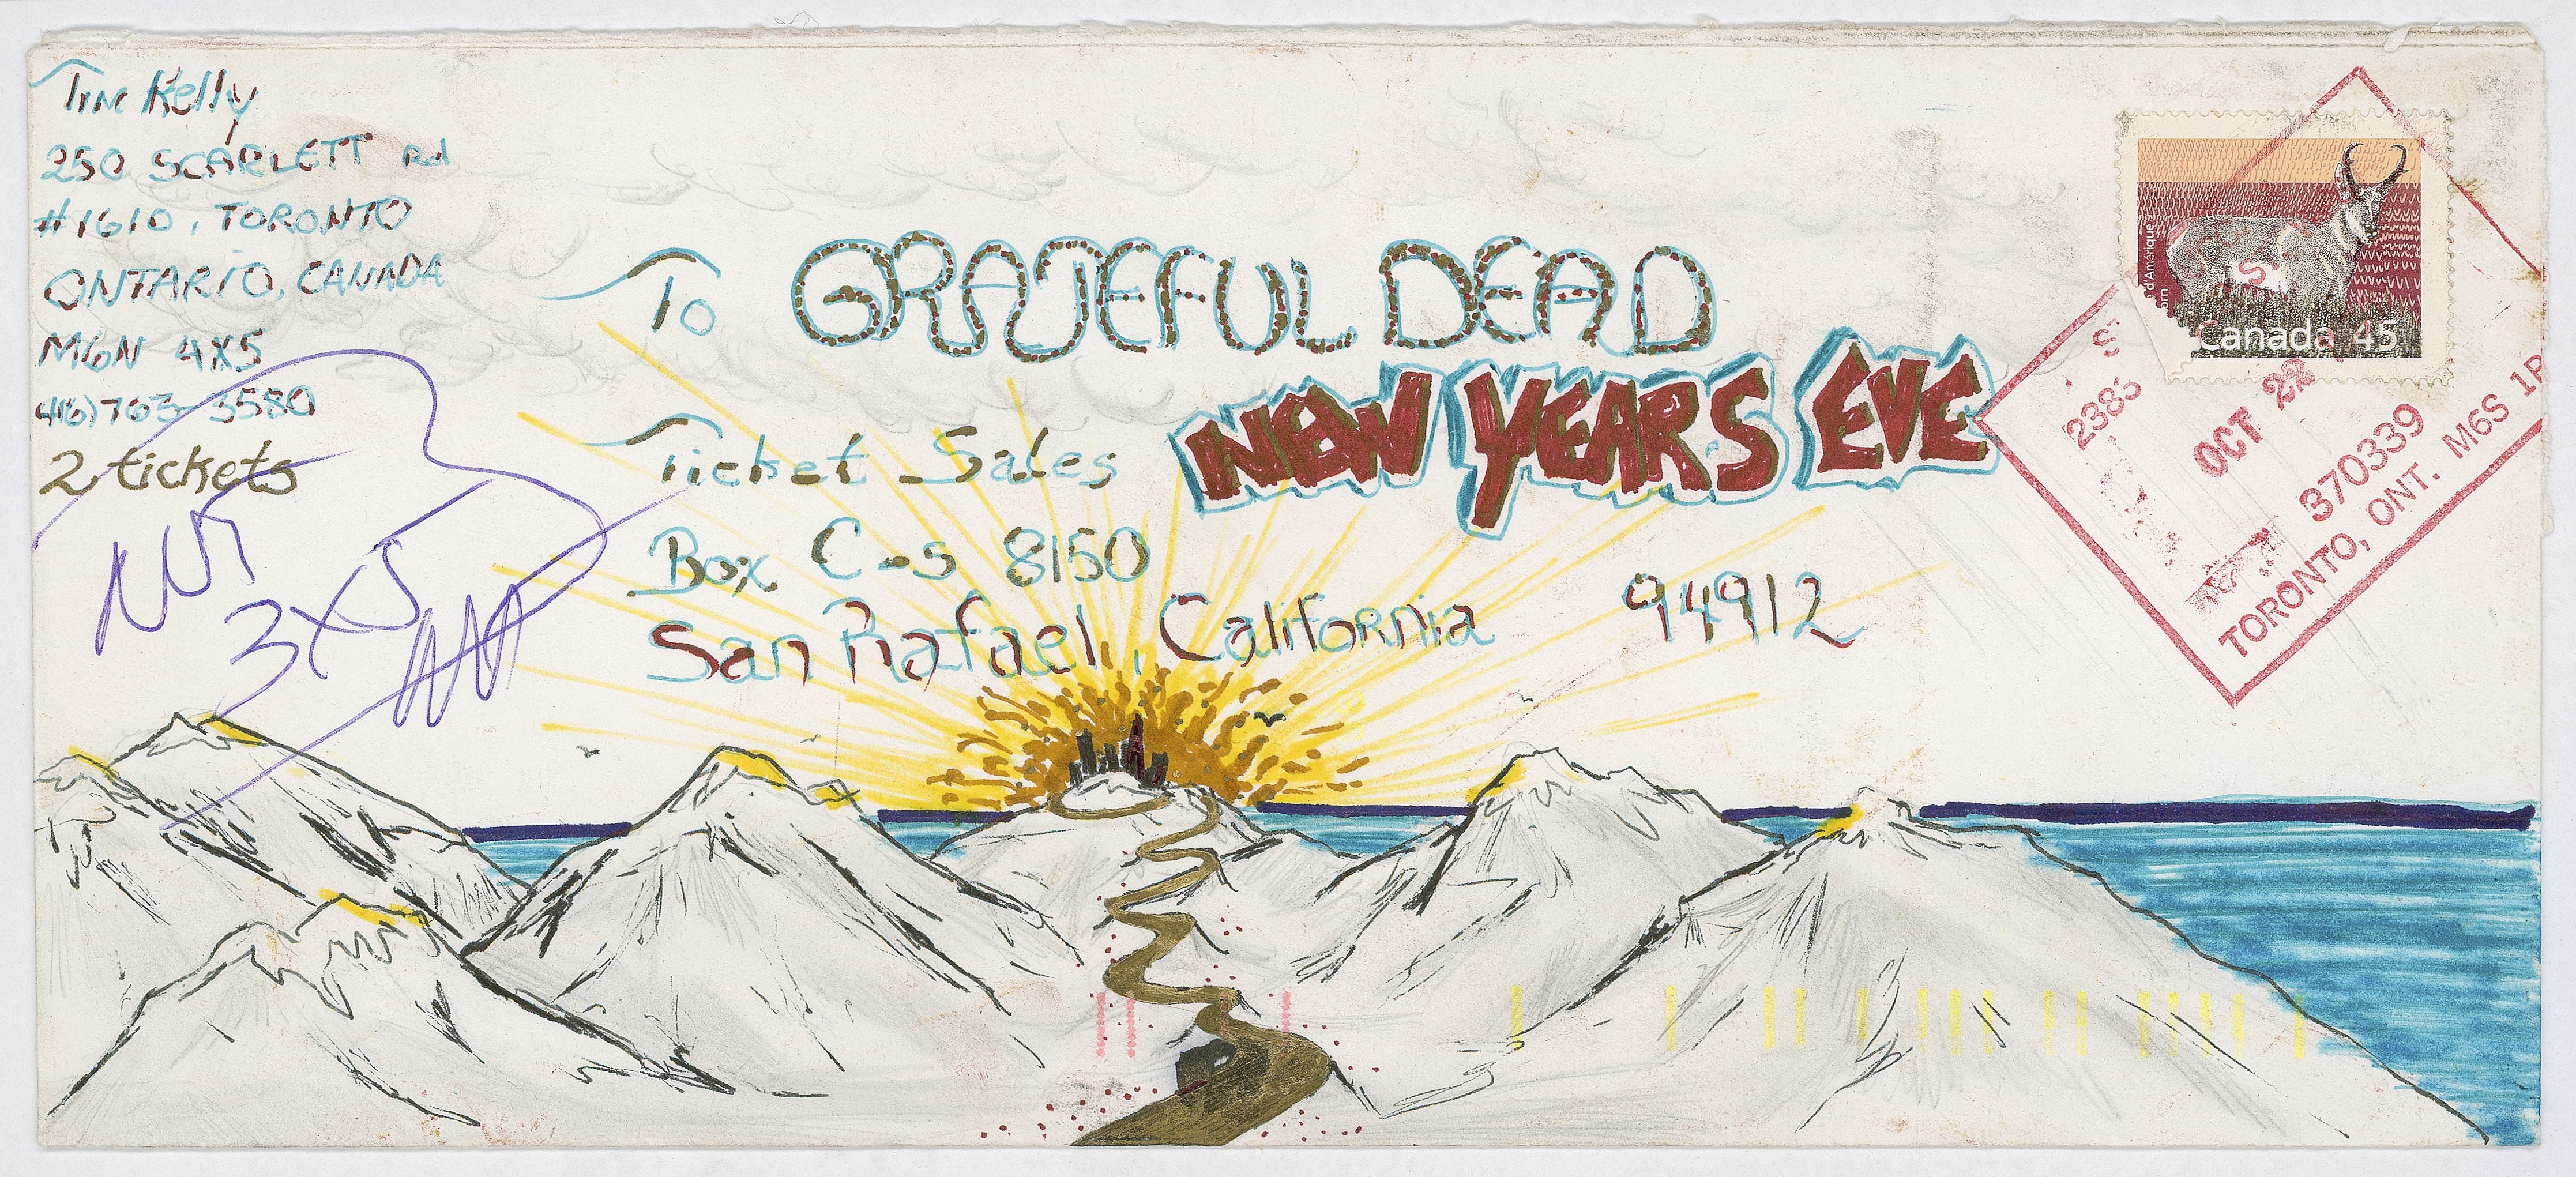 Tim Kelly
250 SCARLETT Rd
#1610, TORONTO
ONTARIO, CANADA
M6N 4X5
416) 763-3580
2 tickets
3x5
To GRATEFUL DEAD
NEW YEARS EVE
Ticket Sales
Box C-S 8150
San Rafael, California 94912
d'Amérique
Canada 45
2385
OCT 22
370339
TORONTO, ONT. M6S 1P